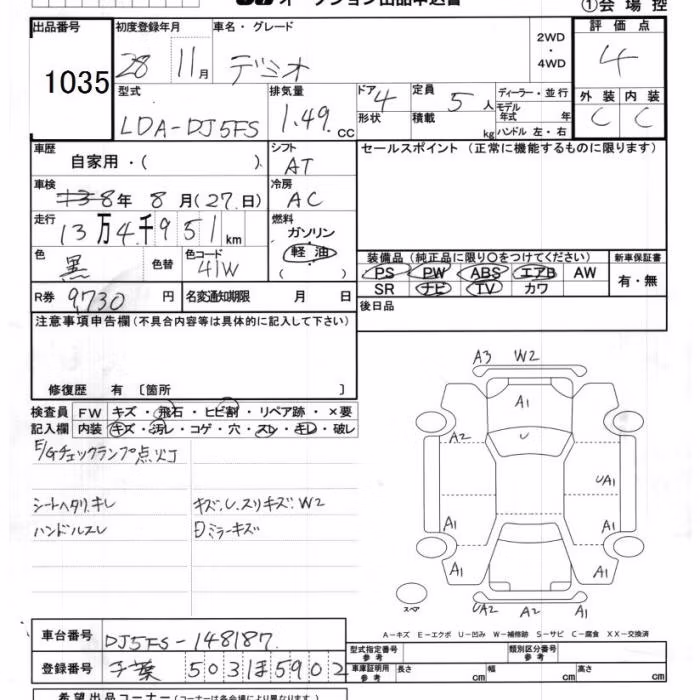 オークション出品申込書
①会場控
出品番号 1035
初度登録年月 28 11月
車名・グレード デミオ
2WD
・
4WD
評価点 4
外装 C 内装 C
型式 LDA-DJ5FS
排気量 1.49 CC
ドア 4
形状
定員 5人
積載 kg
ディーラー・並行
モデル年式 年
ハンドル 左・右
車歴 自家用・( )
シフト AT
セールスポイント(正常に機能するものに限ります)
車検 8年 8月(27日)
冷房 AC
走行 13万4千951km
燃料 ガソリン
軽油
( )
色 黒 色替
色コード 41W
装備品(純正品に限り○をつけてください)
新車保証書
PS PW ABS エアB AW
有・無
SR ナビ TV カワ
R券 9,730円
名変通知期限 月 日
後日品
注意事項申告欄(不具合内容等は具体的に記入して下さい)
修復歴 有 [箇所 ]
検査員 FW キズ・飛石・ヒビ割・リペア跡・×要
記入欄 内装 キズ・汚レ・コゲ・穴・スレ・キレ・破レ
E/Gチェックランプ点灯
シートヘタリ、キレ
キズ、U、スリキズ、W2
ハンドルスレ
ミラーキズ
A3 W2
A1
A2
U
UA1
A1
A1
A1
A1
UA2 A2 A1
スペア
A－キズ E－エクボ U－凹み W－補修跡 S－サビ C－腐食 XX－交換済
車台番号 DJ5FS-148187
型式指定番号 参考
類別区分番号 参考
登録番号 千葉 503 ほ 5902
車庫証明用 参考 長さ cm 幅 cm 高さ cm
希望出品コーナー(コーナーは各会場により異なります)